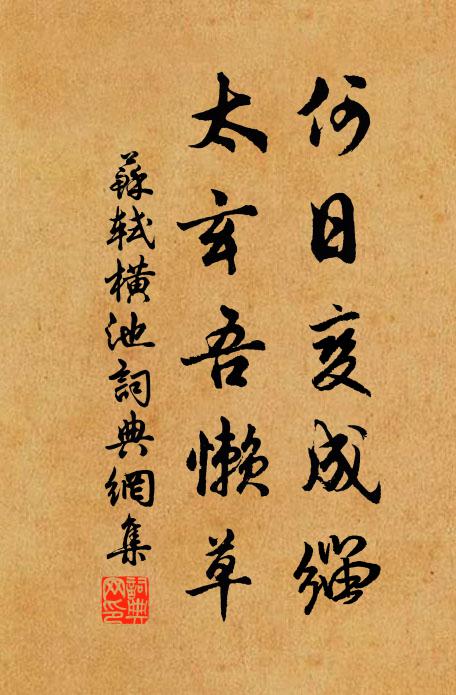 何日変成緇
太玄吾懶草
蘇軾橫池詞典網集
詞典网印